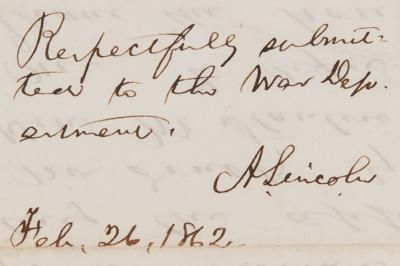 Respectfully submit-
ted to the War Dep-
artment.
A. Lincoln
Feb. 26, 1862.